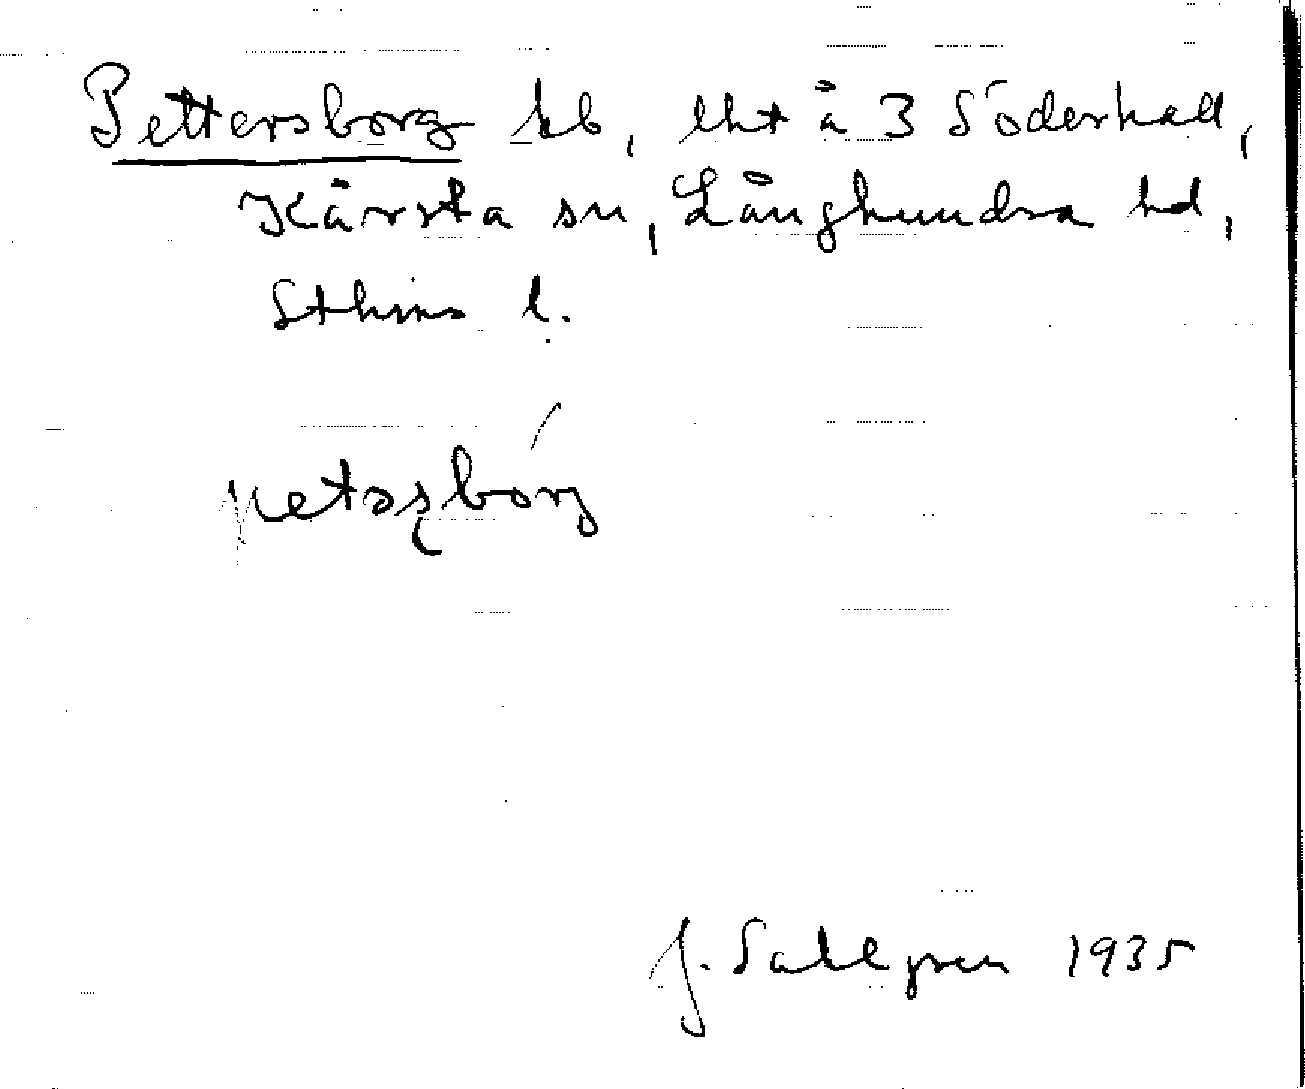 Pettersborg hb, lht å 3 Söderhall,
Kårsta sn, Långhundra hd,
Sthms l.
petəʂbórg
J. Sahlgren 1935